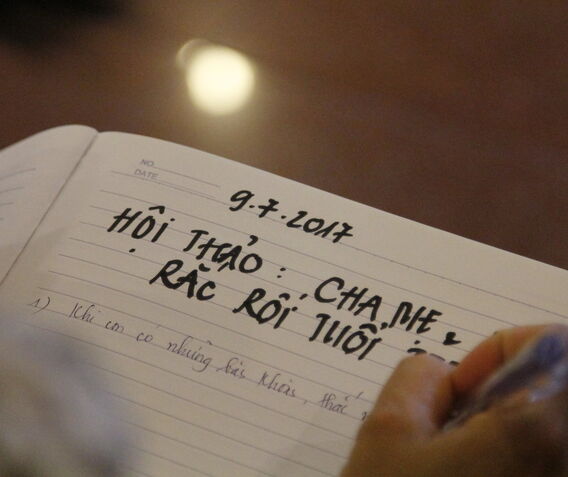 NO.
DATE
9.7.2017
HỘI THẢO: CHA MẸ &
RẮC RỐI TUỔI
1) Khi con có những băn khoăn, thắc